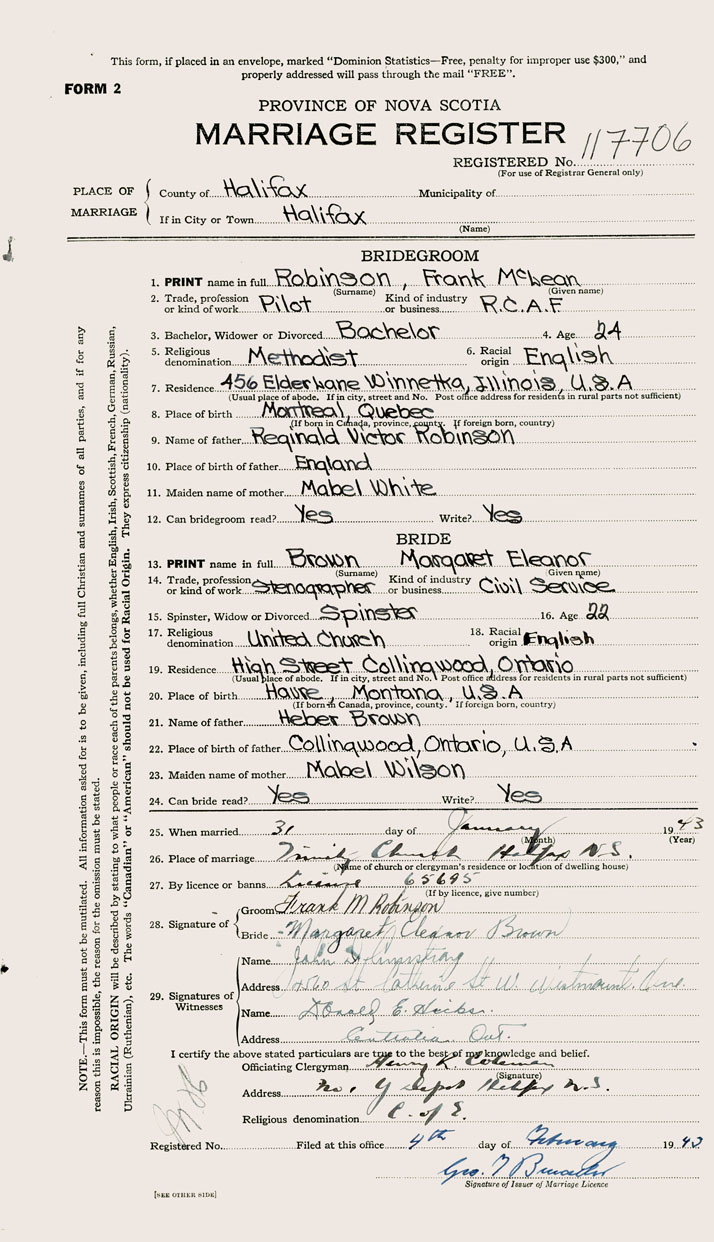 This form, if placed in an envelope, marked "Dominion Statistics—Free, penalty for improper use $300," and
properly addressed will pass through the mail "FREE".
FORM 2
PROVINCE OF NOVA SCOTIA
MARRIAGE REGISTER
REGISTERED No. 117706
(For use of Registrar General only)
PLACE OF MARRIAGE
County of Halifax Municipality of
If in City or Town Halifax
(Name)
BRIDEGROOM
1. PRINT name in full Robinson, Frank McLean
(Surname) (Given name)
2. Trade, profession or kind of work Pilot Kind of industry or business R.C.A.F.
3. Bachelor, Widower or Divorced Bachelor 4. Age 24
5. Religious denomination Methodist 6. Racial origin English
7. Residence 456 Elder Lane Winnetka, Illinois, U.S.A
(Usual place of abode. If in city, street and No. Post office address for residents in rural parts not sufficient)
8. Place of birth Montreal, Quebec
(If born in Canada, province, county. If foreign born, country)
9. Name of father Reginald Victor Robinson
10. Place of birth of father England
11. Maiden name of mother Mabel White
12. Can bridegroom read? Yes Write? Yes
BRIDE
13. PRINT name in full Brown Margaret Eleanor
(Surname) (Given name)
14. Trade, profession or kind of work Stenographer Kind of industry or business Civil Service
15. Spinster, Widow or Divorced Spinster 16. Age 22
17. Religious denomination United Church 18. Racial origin English
19. Residence High Street Collingwood, Ontario
(Usual place of abode. If in city, street and No. Post office address for residents in rural parts not sufficient)
20. Place of birth Havre, Montana, U.S.A
(If born in Canada, province, county. If foreign born, country)
21. Name of father Heber Brown
22. Place of birth of father Collingwood, Ontario, U.S.A
23. Maiden name of mother Mabel Wilson
24. Can bride read? Yes Write? Yes
25. When married 31 day of January 1943
(Month) (Year)
26. Place of marriage Trinity Church Halifax N.S.
(Name of church or clergyman's residence or location of dwelling house)
27. By licence or banns License 65695
(If by licence, give number)
28. Signature of
Groom Frank M Robinson
Bride Margaret Eleanor Brown
29. Signatures of Witnesses
Name John Armstrong
Address St Catherine St W. Westmount. Que.
Name Donald E. Hicks.
Address Centralia Ont.
I certify the above stated particulars are true to the best of my knowledge and belief.
Officiating Clergyman Henry R. Coleman
(Signature)
Address No. 1 Y Depot Halifax N.S.
Religious denomination C. of E.
Registered No. Filed at this office 4th day of February 1943
Geo.
Signature of Issuer of Marriage Licence
[SEE OTHER SIDE]
NOTE.—This form must not be mutilated. All information asked for is to be given, including full Christian and surnames of all parties, and if for any
reason this is impossible, the reason for the omission must be stated.
RACIAL ORIGIN will be described by stating to what people or race each of the parents belongs, whether English, Irish, Scottish, French, German, Russian,
Ukrainian (Ruthenian), etc. The words "Canadian" or "American" should not be used for Racial Origin. They express citizenship (nationality).